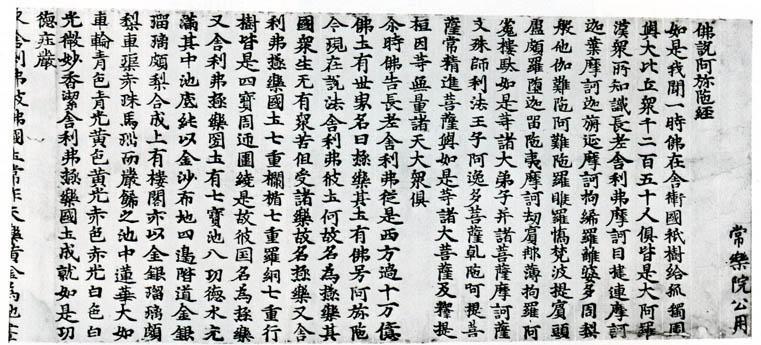 常樂院公用
佛説阿弥陁經
如是我聞一時佛在舎衛國秖樹給孤獨園
與大比丘衆千二百五十人俱皆是大阿羅
漢衆所知識長老舎利弗摩訶目揵連摩訶
迦葉摩訶迦旃延摩訶拘絺羅離婆多周梨
槃他伽難陁阿難陁羅睺羅憍梵波提賓頭
盧頗羅墮迦留陁夷摩訶劫賓那薄拘羅阿
㝹樓馱如是等諸大弟子并諸菩薩摩訶薩
文殊師利法王子阿逸多菩薩乹陁呵提菩
薩常精進菩薩與如是等諸大菩薩及釋提
桓因等無量諸天大衆俱
尒時佛告長老舎利弗從是西方過十万億
佛土有世界名曰極樂其土有佛号阿弥陁
今現在説法舎利弗彼土何故名為極樂其
國衆生无有衆苦但受諸樂故名極樂又舎
利弗極樂國土七重欄楯七重羅網七重行
樹皆是四寳周迊圍繞是故彼国名為極樂
又舎利弗極樂國土有七寳池八功德水充
滿其中池底純以金沙布地四邊階道金銀
瑠璃頗梨合成上有樓閣亦以金銀瑠璃頗
梨車璖赤珠馬瑙而嚴飾之池中蓮華大如
車輪青色青光黄色黄光赤色赤光白色白
光微妙香潔舎利弗極樂國土成就如是功
德庄嚴
又舎利弗彼佛國土常作天樂黄金為地